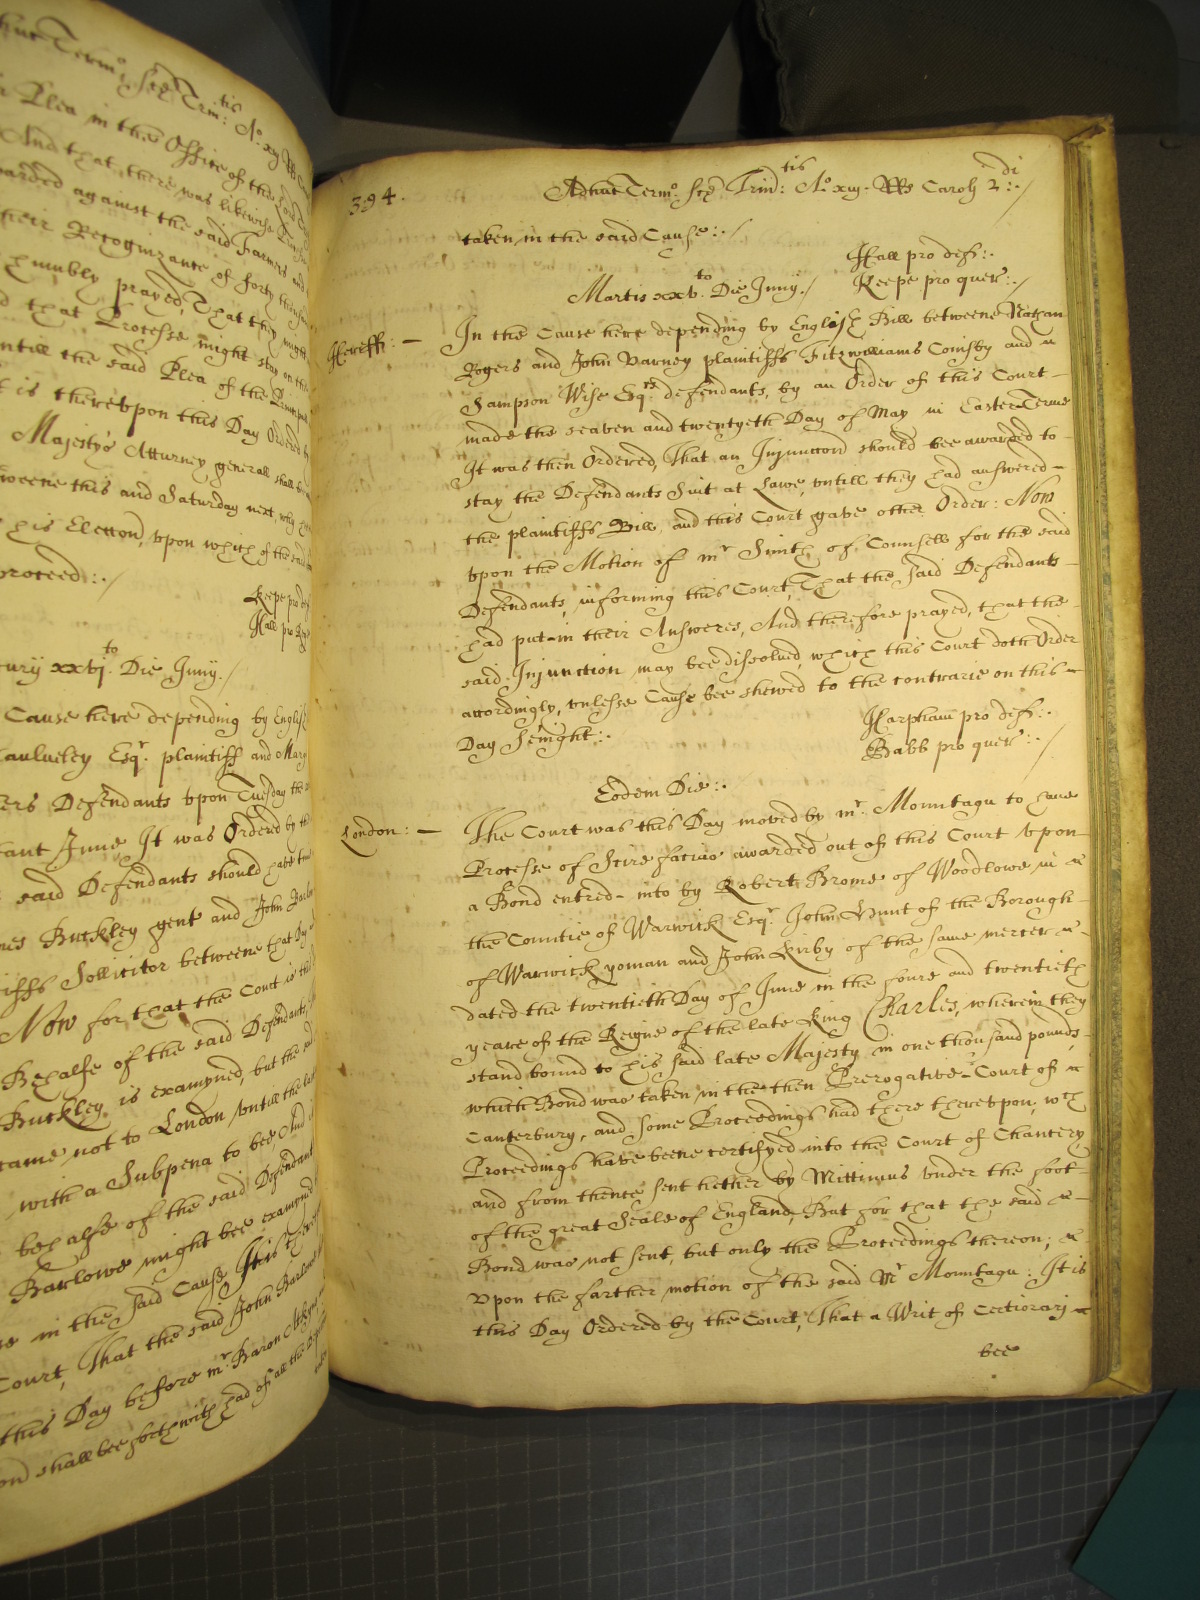 Plea in the Office of the Lord
And that there was likewise
awarded against the said Farmers and
their Recognizance of forty thousand
humbly prayed, That they might
d that Processe might stay on this
untill the said Plea of the
t is therevpon this Day Ordered by
Majestys Atturney generall shall
tweene this and Saturday next, why
his Eleccon, vpon which of the said
proceed:./
Keepe pro def
Hall pro
xxvj.to Die Junij./
Cause here depending by English
Esqr. plaintiff and Mary
ers Defendants vpon Tuesday the
tant June It was Ordered by the
said Defendants should have
mes Buckley gent and John
iffs Sollicitor betweene that Day
Now for that the Court is this
Behalfe of the said Defendants,
Buckley is examyned, but the said
came not to London vntill the last
with a Subpena to bee, And
behalfe of the said Defendant
Barlowe might bee examyned
in the said Cause It is therevpon
Court, That the said John Barlowe
this Day before mr. Baron Atkyns
shall bee forthwith had of all the
394.
Adhuc Termo. Scæ Trin:tis Ao. xiij. RRs Caroli 2.di:./
taken in the said Cause:./
Hall pro def:.
Keepe pro quer:./
Martis xxv.to Die Junij./
Hereff:. —
In the Cause here depending by English Bill betweene Nathan
Rogers and John Varney plaintiffs Fitzwilliams Conisby and
Sampson Wise Esqrs. defendants, by an Order of this Court
made the seaven and twentyeth Day of May in Easter Terme
It was then Ordered, That an Injunccon should bee awarded to
stay the Defendants Suit at Lawe, vntill they had answered
the plaintiffs Bill, and this Court gave other Order: Now
vpon the Motion of mr Smith of Counsell for the said
Defendants, informing this Court, That the said Defendants
had put in their Answeres, And therefore prayed, that the
said Injunction may bee dissolved, which this Court doth Order
accordingly, vnlesse Cause bee shewed to the contrarie on this
Day Senight:.
Harpham pro def:.
Babb pro quer:./
Eodem Die:.
London: —
The Court was this Day moved by mr. Mountagu to have
Processe of Scire facias awarded out of this Court vpon
a Bond entred into by Robert Brome of Woodlowe in
the Countie of Warwick Esqr. John Hunt of the Borough
of Warwick yoman and John Kirby of the same mercer
dated the twentieth Day of June in the foure and twentieth
yeare of the Reigne of the late King Charles, wherein they
stand bound to his said late Majesty in one thousand pounds
which Bond was taken in the then Prerogative Court of
Canterbury, and some Proceedings had there therevpon, wch
Proceedings have beene certifyed into the Court of Chancery
and from thence sent hether by Mittimus vnder the foot
of the great Seale of England, But for that the said
Bond was not sent, but only the Proceedings thereon;
Vpon the farther motion of the said Mr Mountagu: It is
this Day Ordered by the Court, That a Writ of Certiorarj
bee